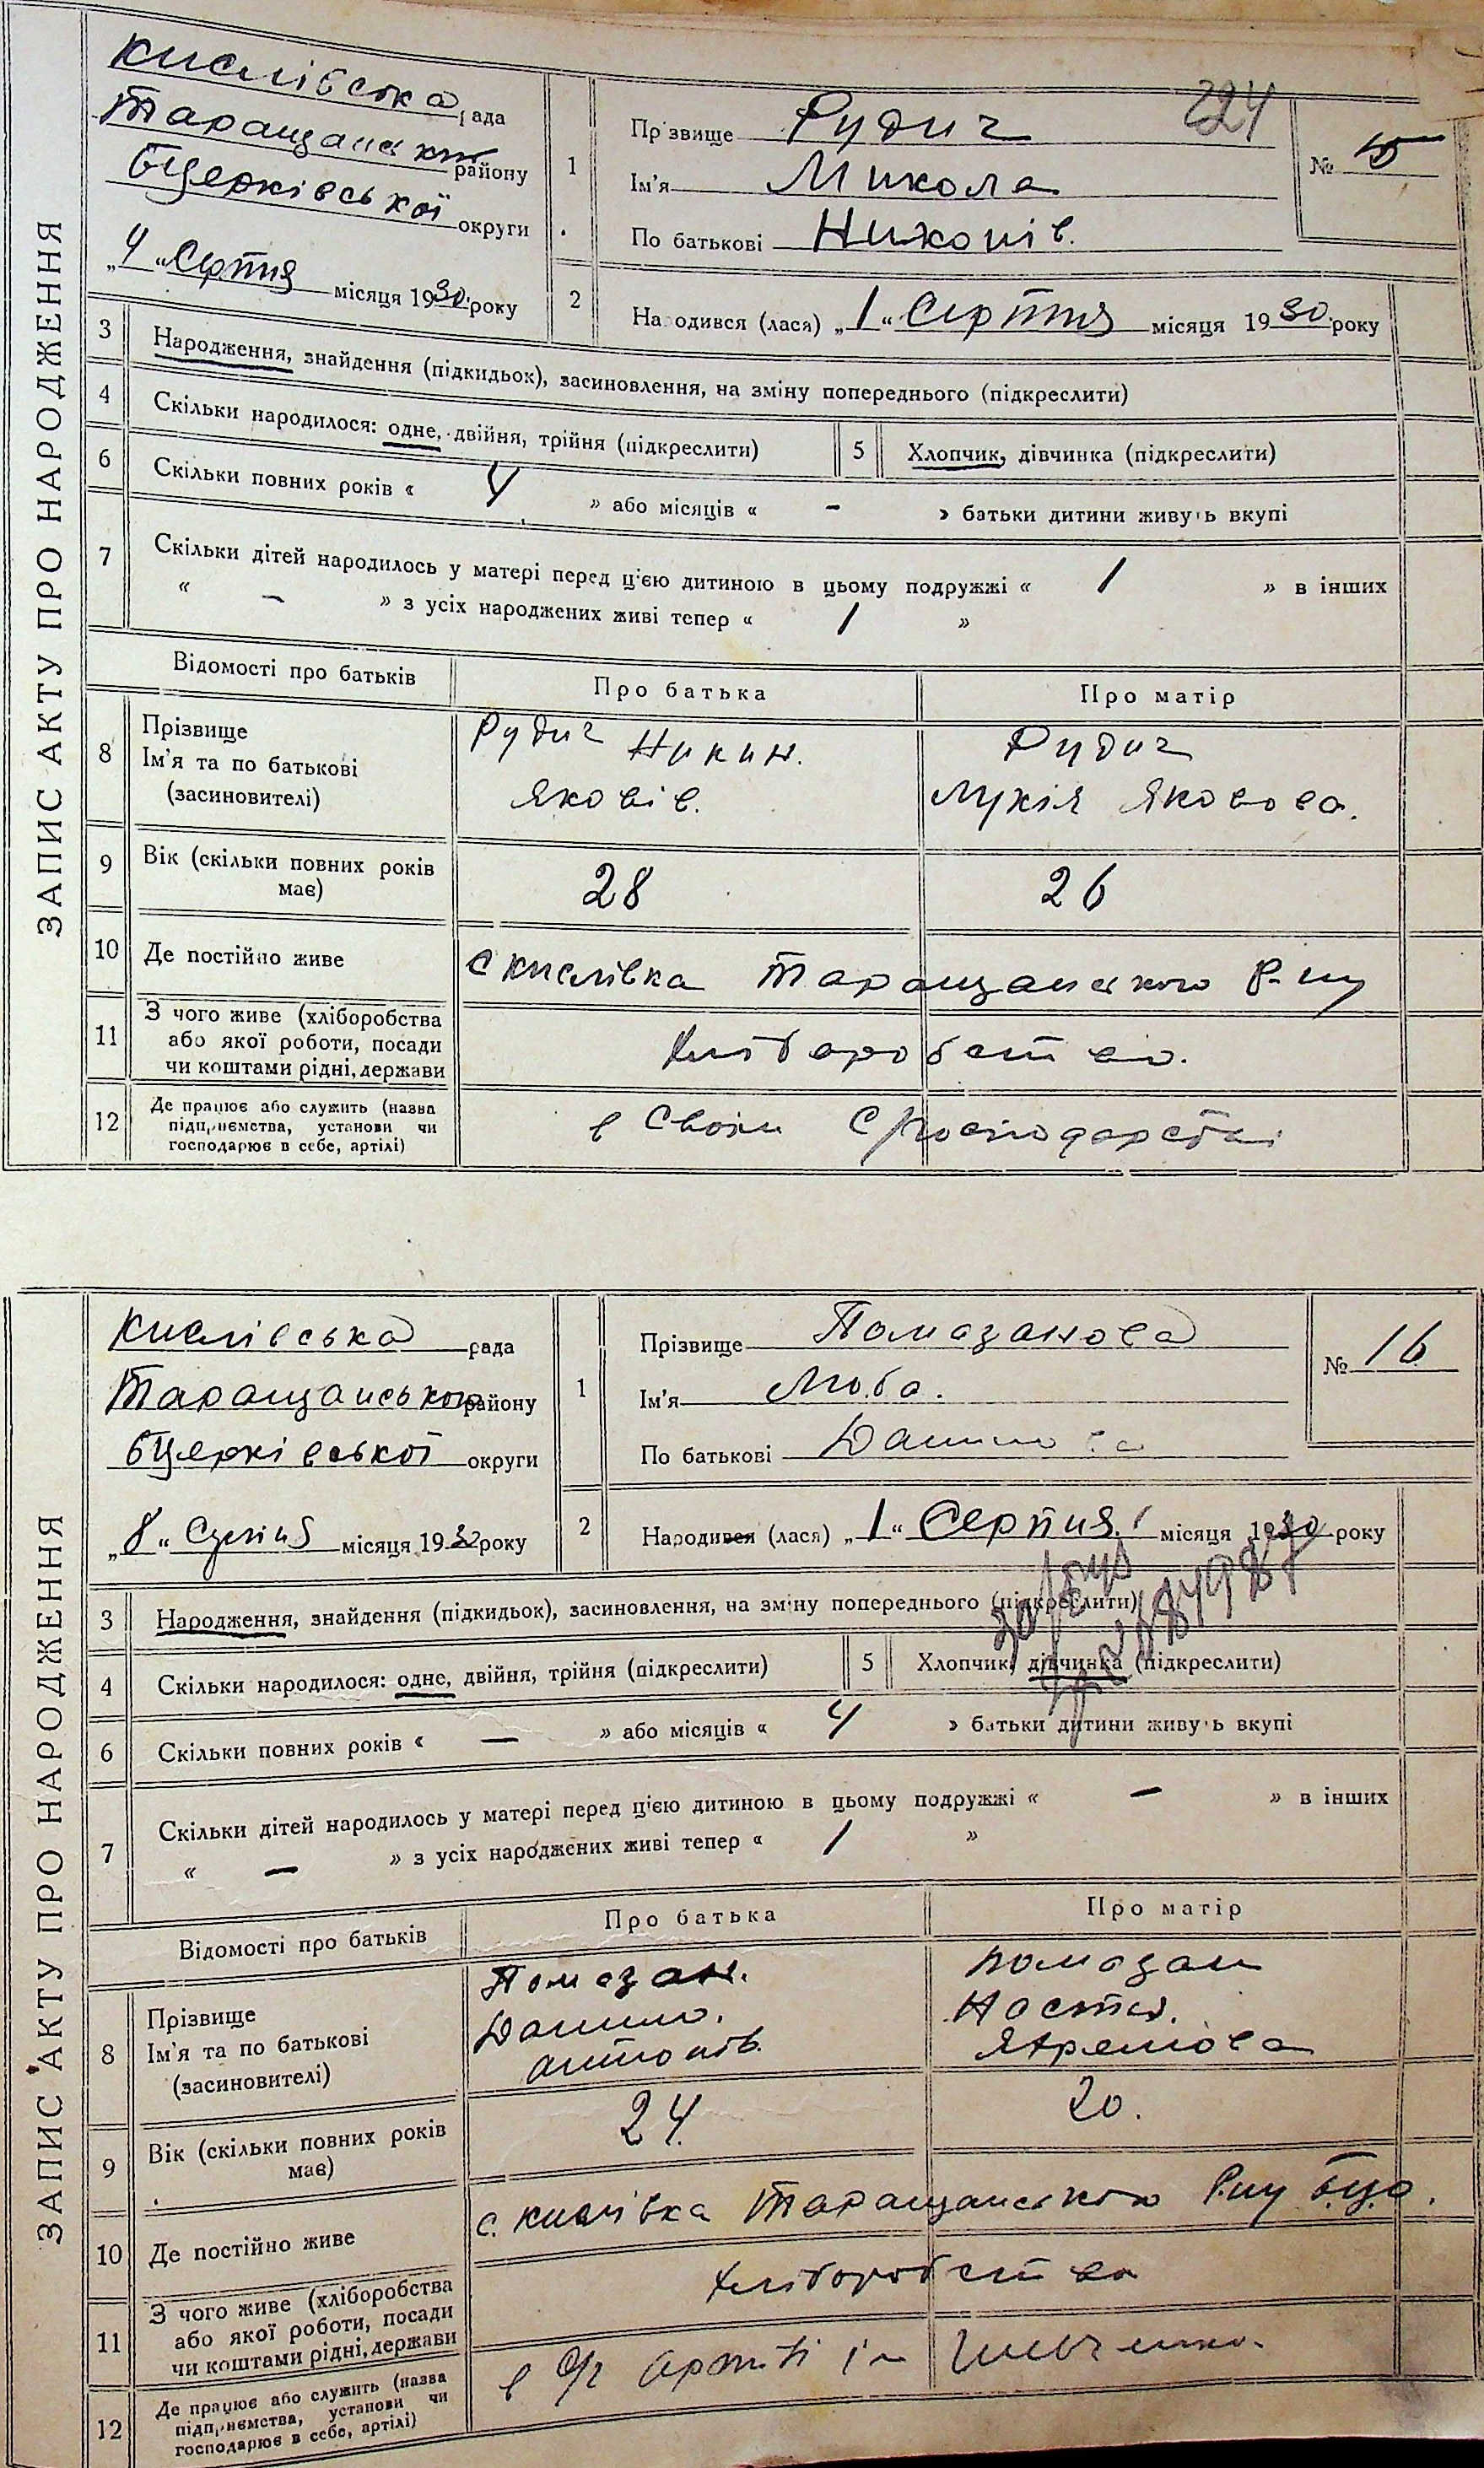 ЗАПИС АКТУ ПРО НАРОДЖЕННЯ
Кислівська рада
Таращанськ району
БЦерківської округи
„4" Серпня місяця 1930 року
1
Прізвище Рудич
224
Ім'я Микола
По батькові Никонів.
№ 15
2
Народився (лася) „1" Серпня місяця 1930 року
3 Народження, знайдення (підкидьок), засиновлення, на зміну попереднього (підкреслити)
4 Скільки народилося: одне, двійня, трійня (підкреслити) 5 Хлопчик, дівчинка (підкреслити)
6 Скільки повних років « 4 » або місяців « - » батьки дитини живуть вкупі
7 Скільки дітей народилось у матері перед цією дитиною в цьому подружжі « 1 » в інших
« - » з усіх народжених живі тепер « 1 »
Відомості про батьків Про батька Про матір
8 Прізвище
Ім'я та по батькові
(засиновителі)
Рудич Никин.
Яковів.
Рудич
Лукія Яковова.
9 Вік (скільки повних років має) 28 26
10 Де постійно живе с Кислівка Таращанського Р-ну
11 З чого живе (хліборобства
або якої роботи, посади
чи коштами рідні, держави
хліборобство.
12 Де працює або служить (назва
підприємства, установи чи
господарює в себе, артілі)
в своїм С/господарстві
ЗАПИС АКТУ ПРО НАРОДЖЕННЯ
Кислівська рада
Таращанського району
БЦерківської округи
„8" Серпня місяця 1930 року
1
Прізвище Помазанова
Ім'я Люба.
По батькові Данилова
№ 16
2
Народився (лася) „1" Серпня місяця 1930 року
3 Народження, знайдення (підкидьок), засиновлення, на зміну попереднього (підкреслити)
4 Скільки народилося: одне, двійня, трійня (підкреслити) 5 Хлопчик, дівчинка (підкреслити)
6 Скільки повних років « — » або місяців « 4 » батьки дитини живуть вкупі
7 Скільки дітей народилось у матері перед цією дитиною в цьому подружжі « — » в інших
« — » з усіх народжених живі тепер « 1 »
Відомості про батьків Про батька Про матір
8 Прізвище
Ім'я та по батькові
(засиновителі)
Помазан.
Данило.
Антонів.
Помазан
Настя.
Яремова
9 Вік (скільки повних років має) 24. 20.
10 Де постійно живе с. Кислівка Таращанського Р-ну б.ц.о.
11 З чого живе (хліборобства
або якої роботи, посади
чи коштами рідні, держави
хліборобство
12 Де працює або служить (назва
підприємства, установи чи
господарює в себе, артілі)
в с/г артілі ім Шевченка.